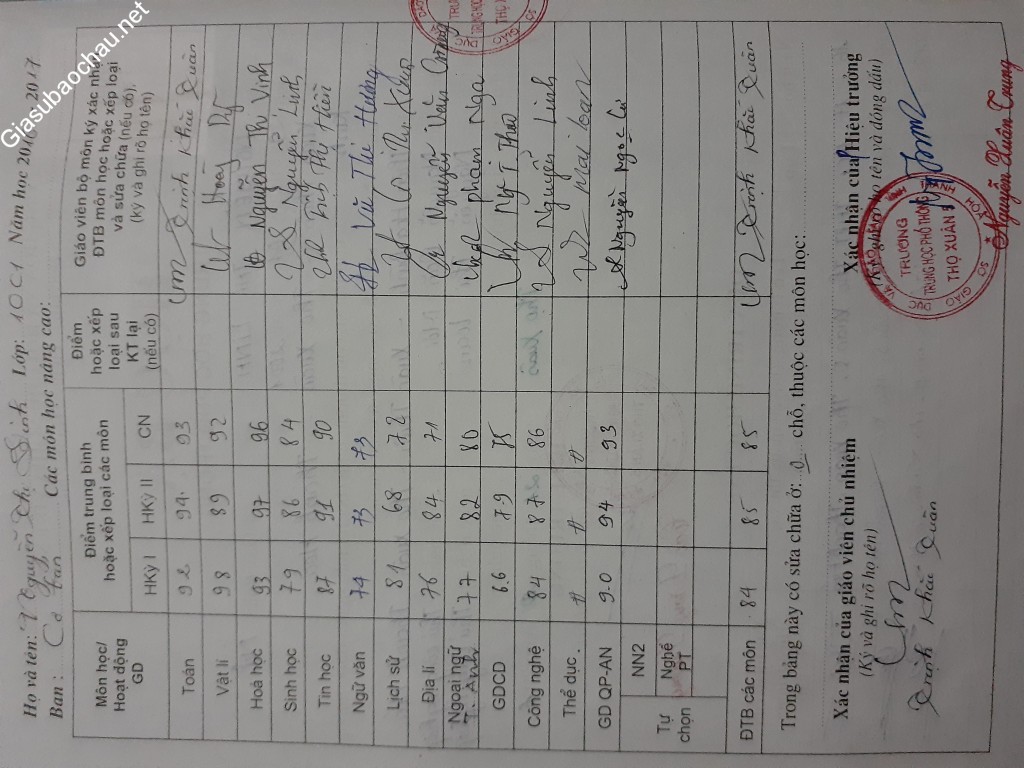 Giasubaochau.net
Họ và tên: Nguyễn Thị Sinh Lớp: 10C1 Năm học 2016 - 2017
Ban: Cơ bản Các môn học nâng cao:
Môn học/ Hoạt động GD | Điểm trung bình hoặc xếp loại các môn | Điểm hoặc xếp loại sau KT lại (nếu có) | Giáo viên bộ môn ký xác nhận ĐTB môn học hoặc xếp loại và sửa chữa (nếu có), (Ký và ghi rõ họ tên)
HKỳ I | HKỳ II | CN
Toán 92 94 93 Trịnh Khắc Xuân
Vật lí 98 89 92
Hoá học 93 97 96 Nguyễn Thị Vinh
Sinh học 79 86 84 Nguyễn Linh
Tin học 87 91 90
Ngữ văn 74 73 73 Vũ Thị Hương
Lịch sử 81 68 72
Địa lí 76 84 71 Nguyễn Văn Cường
Ngoại ngữ T. Anh 77 82 80 Phạm Nga
GDCD 6.6 79 75
Công nghệ 84 87 86 Nguyễn Linh
Thể dục Đ Đ Đ Mai Loan
GD QP-AN 9.0 94 93 Nguyễn Ngọc
Tự chọn
NN2
Nghề PT
ĐTB các môn 84 85 85 Trịnh Khắc Xuân
Trong bảng này có sửa chữa ở: 0 chỗ, thuộc các môn học:
Xác nhận của giáo viên chủ nhiệm
(Ký và ghi rõ họ tên)
Trịnh Khắc Xuân
Xác nhận của Hiệu trưởng
(Ký, ghi rõ họ tên và đóng dấu)
TRƯỜNG
TRUNG HỌC PHỔ THÔNG
THỌ XUÂN
SỞ GIÁO DỤC VÀ
THANH HÓA
Nguyễn Xuân Trung